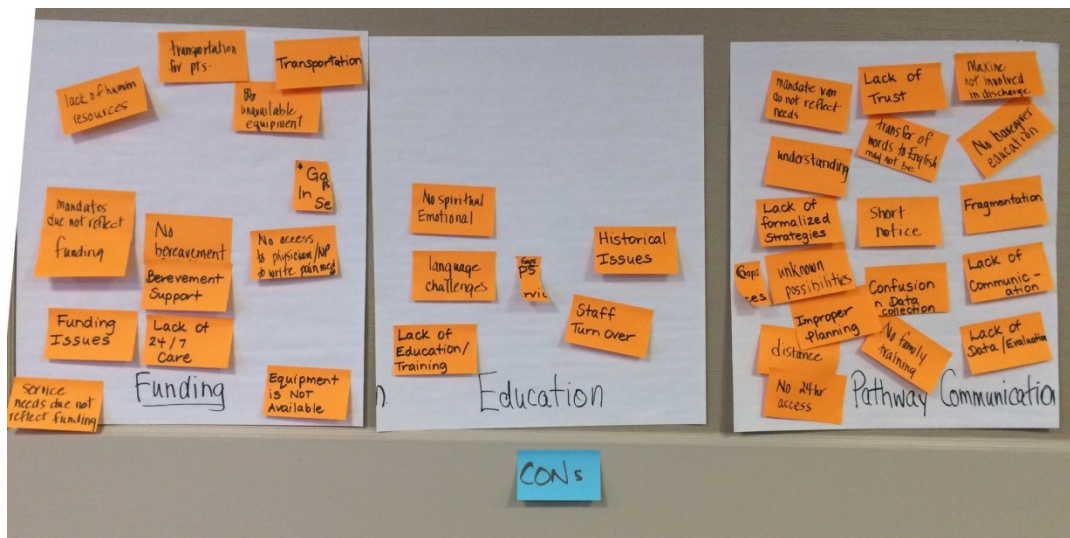 transportation
for pts.
Transportation
lack of human
resources
unavailable
equipment
Ga
ps
In
Se
mandates
due not reflect
funding
No
bereavement
No access
to physician/NP
to write pain med
Berevement
Support
Funding
Issues
Lack of
24/7
Care
Service
needs due not
reflect funding
Equipment
is NOT
Available
Funding
No spiritual
Emotional
language
challenges
Gaps
ps
rvic
Historical
Issues
Staff
Turn over
Lack of
Education/
Training
n
Education
mandate van
do not reflect
needs
Lack of
Trust
Maxine
not involved
in discharge
transfer of
words to English
may not be
No
education
understanding
Lack of
formalized
Strategies
Short
notice
Fragmentation
Gaps
es
unknown
possibilities
Confusion
n Data
collection
Lack of
Communic-
ation
Improper
planning
distance
No family
training
Lack of
Data/Evaluation
No 24hr
access
Pathway Communication
CONs